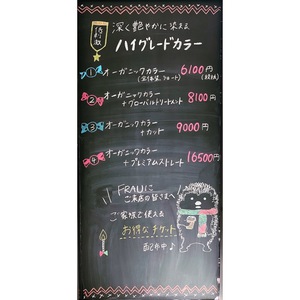 深く艶やかに染まる
ハイグレードカラー
① オーガニックカラー 6100円
② オーガニックカラー
+グローバルトリートメント 8100円
③ オーガニックカラー
+カット 9000円
④ オーガニックカラー
+プレミアムストレート 16500円
FRAUに
ご来店の皆さまへ
ご家族で使える
お得なチケット
配布中♪